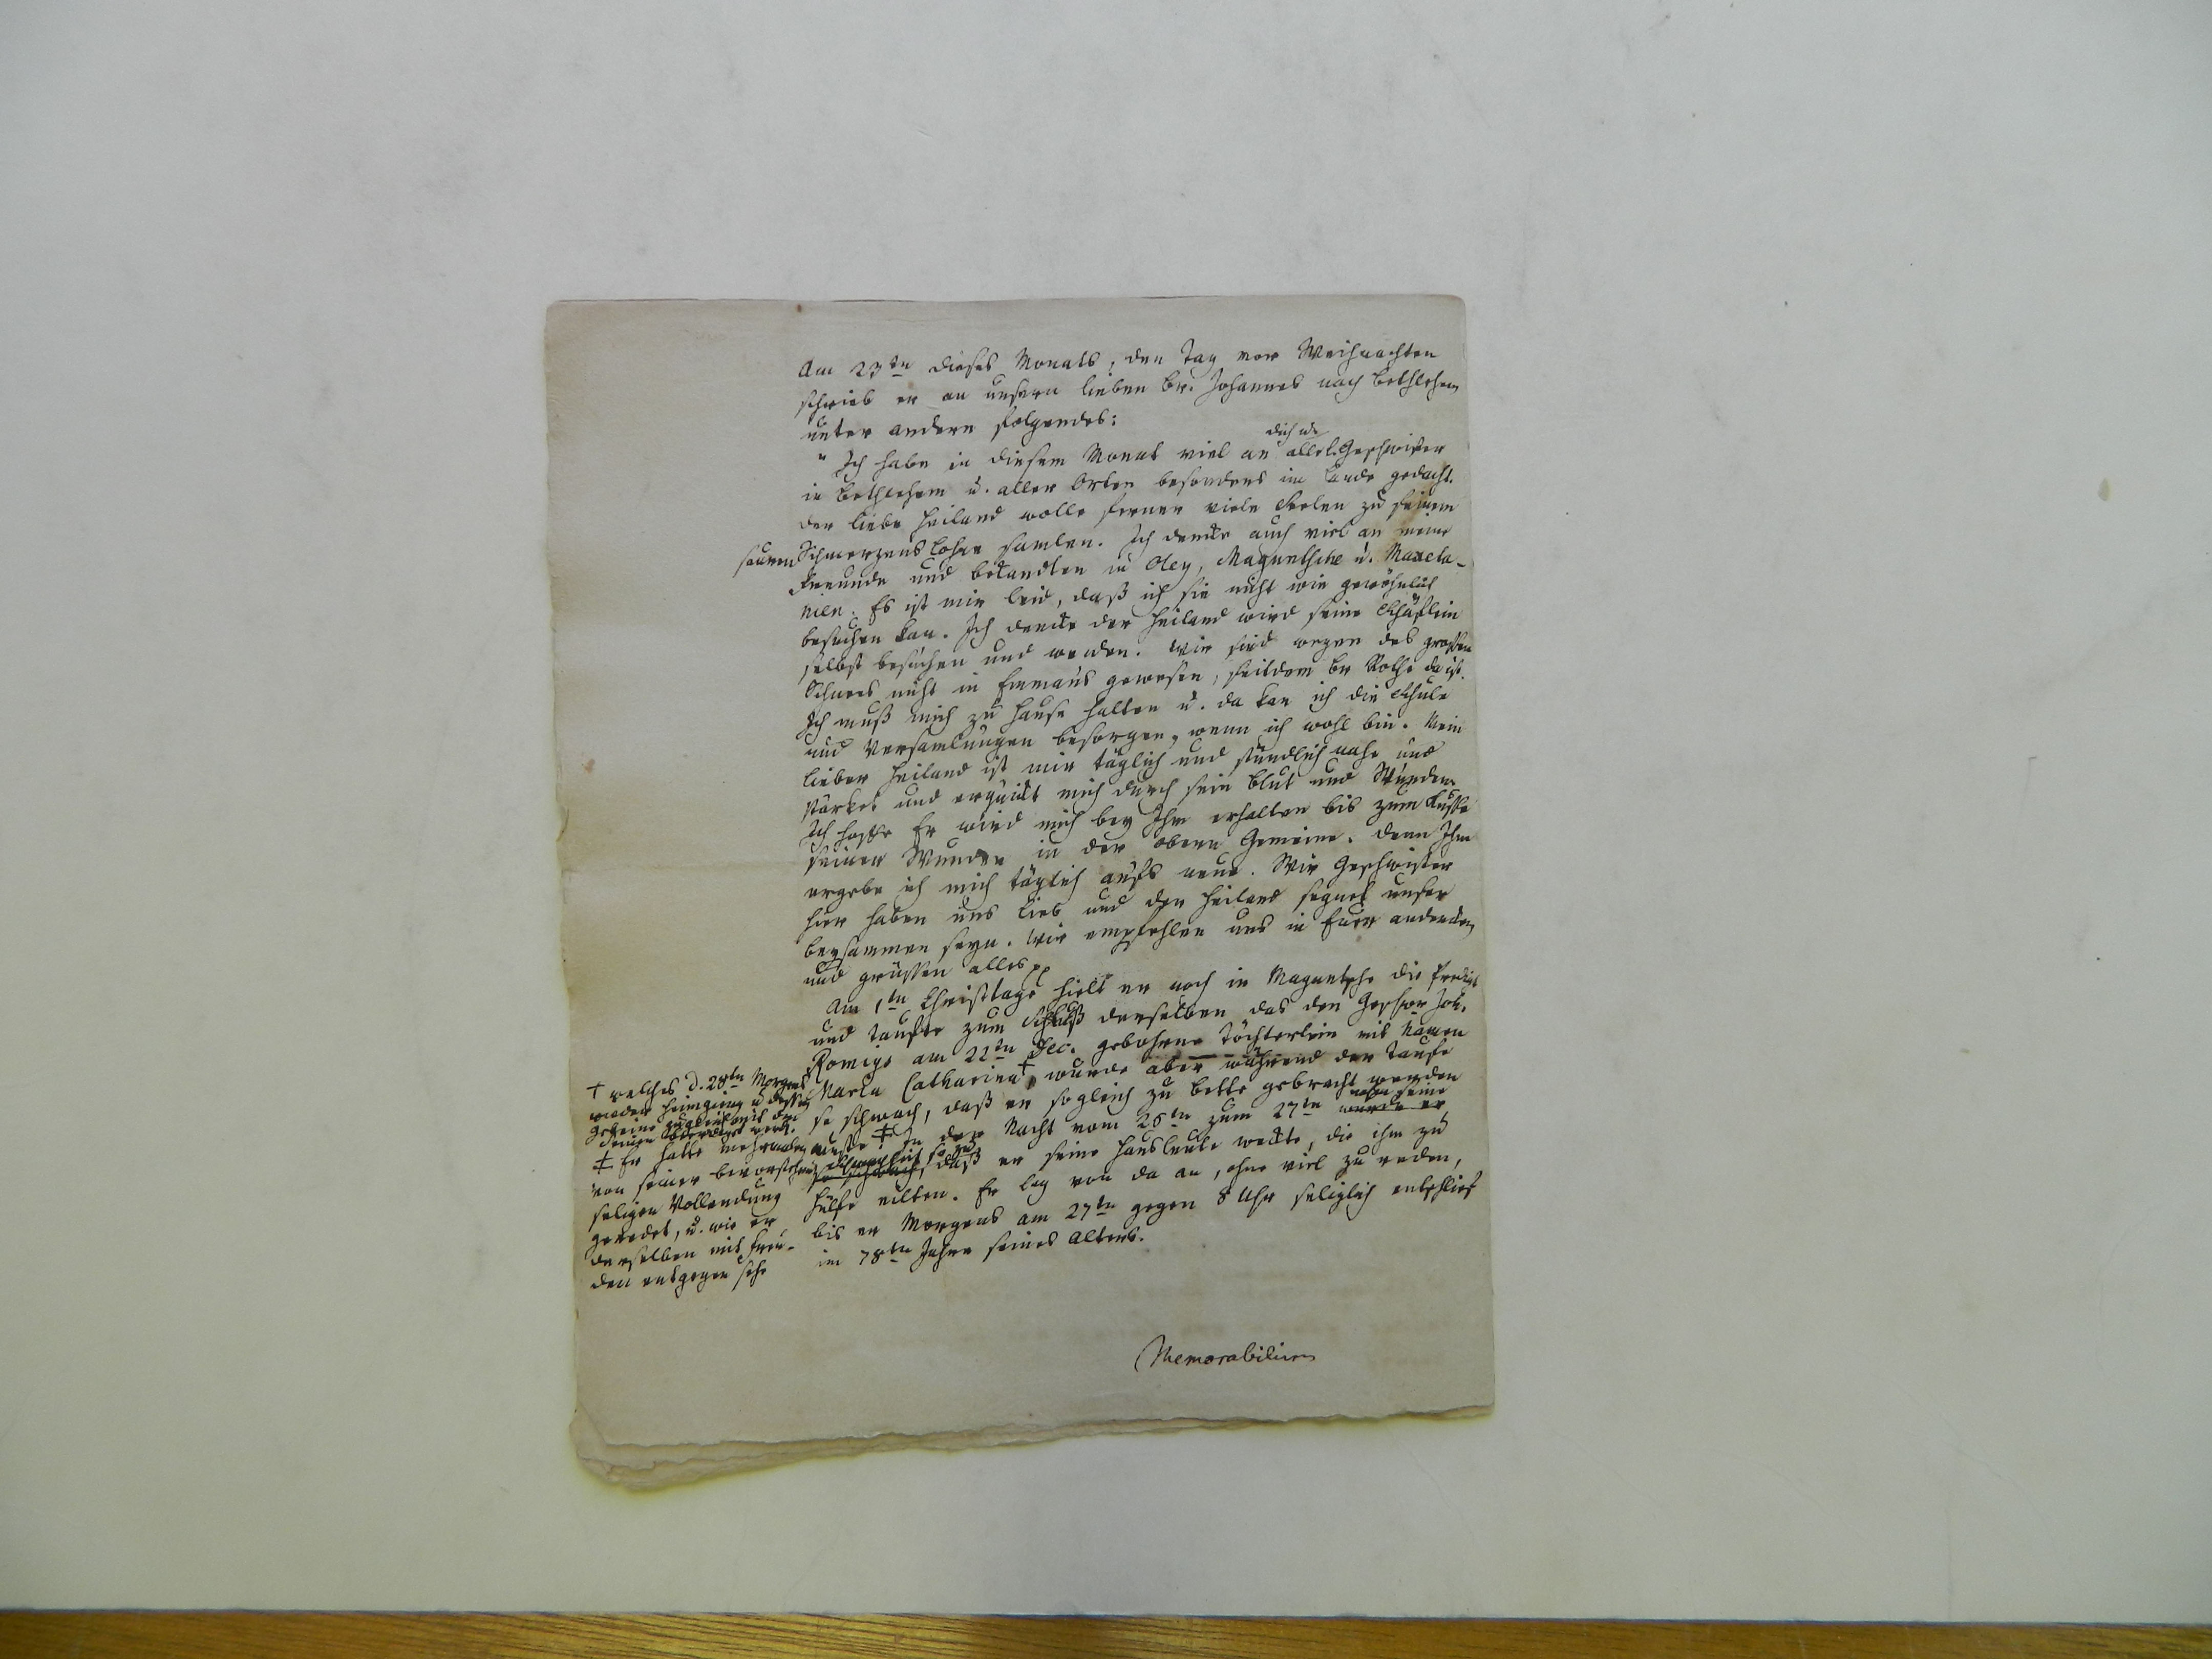 Am 23ten dieses Monats, den Tag vor Weihnachten
schrieb er an unsern lieben Br. Johannes nach Bethlehem
unter andern folgendes:
dich u.
" Ich habe in diesem Monat viel an alle l. Geschwister
in Bethlehem u. aller Orten besonders im Lande gedacht.
Der liebe Heiland wolle ferner viele Seelen zu seinem
sauren Schmerzens Lohne samlen. Ich dencke auch viel an meine
Freunde und bekandten in Oley, Maguntsche u. Maxeta-
nien. Es ist mir leid, daß ich sie nicht wie gewöhnlich
besuchen kan. Ich dencke der Heiland wird seine Schäflein
selbst besuchen und weiden. Wir sind wegen des grossen
Schnees nicht in Emmaus gewesen, seitdem Br Rothe da ist.
Ich muß mich zu Hause halten u. da kan ich die Schule
und Versamlungen besorgen, wenn ich wohl bin. Mein
lieber Heiland ist mir täglich und stündlich nahe und
stärket und erquickt mich durch sein Blut und Wunden.
Ich hoffe Er wird mich bey Ihm erhalten bis zum Kusse
seiner Wunden in der obern Gemeine. Denn Ihm
ergebe ich mich täglich aufs neue. Wir Geschwister
hier haben uns lieb und der Heiland segnet unser
beysammen seyn. Wir empfehlen uns in Euer andencken
und grüssen alles
Am 1ten Christtage hielt er noch in Maguntsche die Predigt
und taufte zum Schluß derselben das den Geschwr Joh.
Romigs am 22ten Dec. gebohrne Töchterlein mit Namen
Maria Catharina †, wurde aber während der Taufe
so schwach, daß er sogleich zu Bette gebracht werden
muste ‡ In der Nacht vom 26ten zum 27ten nahm seine wurde er
Schwachheit so zu so schwach, daß er seine Hausleute weckte, die ihm zu
Hülfe eilten. Er lag von da an, ohne viel zu reden,
bis er Morgens am 27ten gegen 8 Uhr seliglich entschlief
im 78ten Jahre seines Alters.
† welches d. 28ten Morgens
wieder heimging u. dessen
Gebeine zugleich mit den
seinen beerdiget werd.
‡ Er hatte mehrmalen
von seiner bevorstehenden
seligen Vollendung
geredet, u. wie er
derselben mit Freu-
den entgegen sehe
Memorabilien